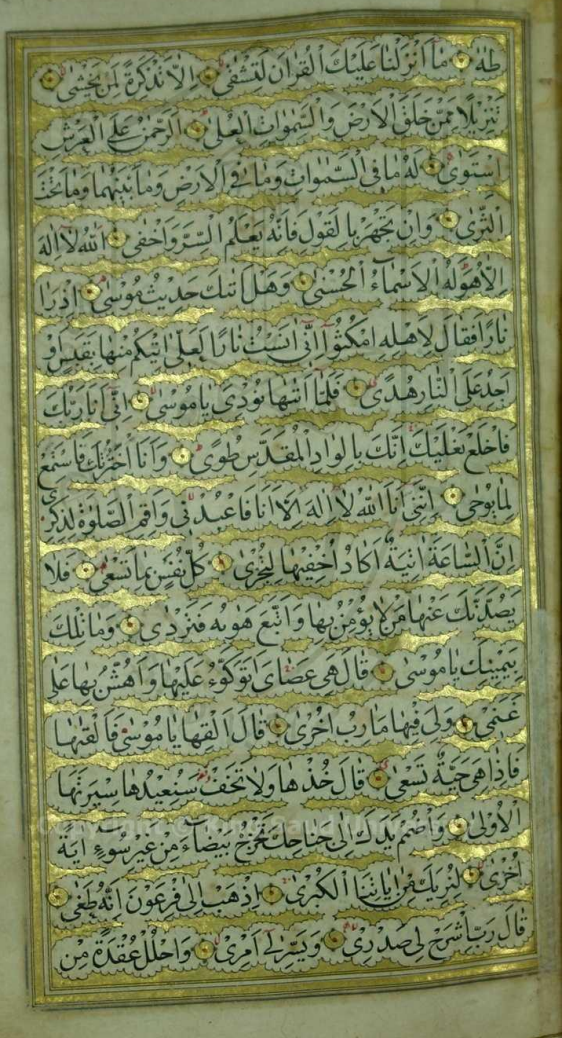 طه مَا اَنْزَلْنَا عَلَيْكَ الْقُرْاٰنَ لِتَشْقٰى اِلَّا تَذْكِرَةً لِمَنْ يَخْشٰى
تَنْزِيلًا مِمَّنْ خَلَقَ الْاَرْضَ وَالسَّمٰوَاتِ الْعُلٰى اَلرَّحْمٰنُ عَلَى الْعَرْشِ
اسْتَوٰى لَهُ مَا فِي السَّمٰوَاتِ وَمَا فِي الْاَرْضِ وَمَا بَيْنَهُمَا وَمَا تَحْتَ
الثَّرٰى وَاِنْ تَجْهَرْ بِالْقَوْلِ فَاِنَّهُ يَعْلَمُ السِّرَّ وَاَخْفٰى اَللّٰهُ لَا اِلٰهَ
اِلَّا هُوَ لَهُ الْاَسْمَاءُ الْحُسْنٰى وَهَلْ اَتٰيكَ حَدِيثُ مُوسٰى اِذْ رَاٰ
نَارًا فَقَالَ لِاَهْلِهِ امْكُثُوا اِنِّي اٰنَسْتُ نَارًا لَعَلِّي اٰتِيكُمْ مِنْهَا بِقَبَسٍ اَوْ
اَجِدُ عَلَى النَّارِ هُدًى فَلَمَّا اَتٰيهَا نُودِيَ يَا مُوسٰى اِنِّي اَنَا رَبُّكَ
فَاخْلَعْ نَعْلَيْكَ اِنَّكَ بِالْوَادِ الْمُقَدَّسِ طُوًى وَاَنَا اخْتَرْتُكَ فَاسْتَمِعْ
لِمَا يُوحٰى اِنَّنِي اَنَا اللّٰهُ لَا اِلٰهَ اِلَّا اَنَا فَاعْبُدْنِي وَاَقِمِ الصَّلٰوةَ لِذِكْرِي
اِنَّ السَّاعَةَ اٰتِيَةٌ اَكَادُ اُخْفِيهَا لِتُجْزٰى كُلُّ نَفْسٍ بِمَا تَسْعٰى فَلَا
يَصُدَّنَّكَ عَنْهَا مَنْ لَا يُؤْمِنُ بِهَا وَاتَّبَعَ هَوٰيهُ فَتَرْدٰى وَمَا تِلْكَ
بِيَمِينِكَ يَا مُوسٰى قَالَ هِيَ عَصَايَ اَتَوَكَّؤُ عَلَيْهَا وَاَهُشُّ بِهَا عَلٰى
غَنَمِي وَلِيَ فِيهَا مَاٰرِبُ اُخْرٰى قَالَ اَلْقِهَا يَا مُوسٰى فَاَلْقٰيهَا
فَاِذَا هِيَ حَيَّةٌ تَسْعٰى قَالَ خُذْهَا وَلَا تَخَفْ سَنُعِيدُهَا سِيرَتَهَا
الْاُولٰى وَاضْمُمْ يَدَكَ اِلٰى جَنَاحِكَ تَخْرُجْ بَيْضَاءَ مِنْ غَيْرِ سُوءٍ اٰيَةً
اُخْرٰى لِنُرِيَكَ مِنْ اٰيَاتِنَا الْكُبْرٰى اِذْهَبْ اِلٰى فِرْعَوْنَ اِنَّهُ طَغٰى
قَالَ رَبِّ اشْرَحْ لِي صَدْرِي وَيَسِّرْ لِي اَمْرِي وَاحْلُلْ عُقْدَةً مِنْ